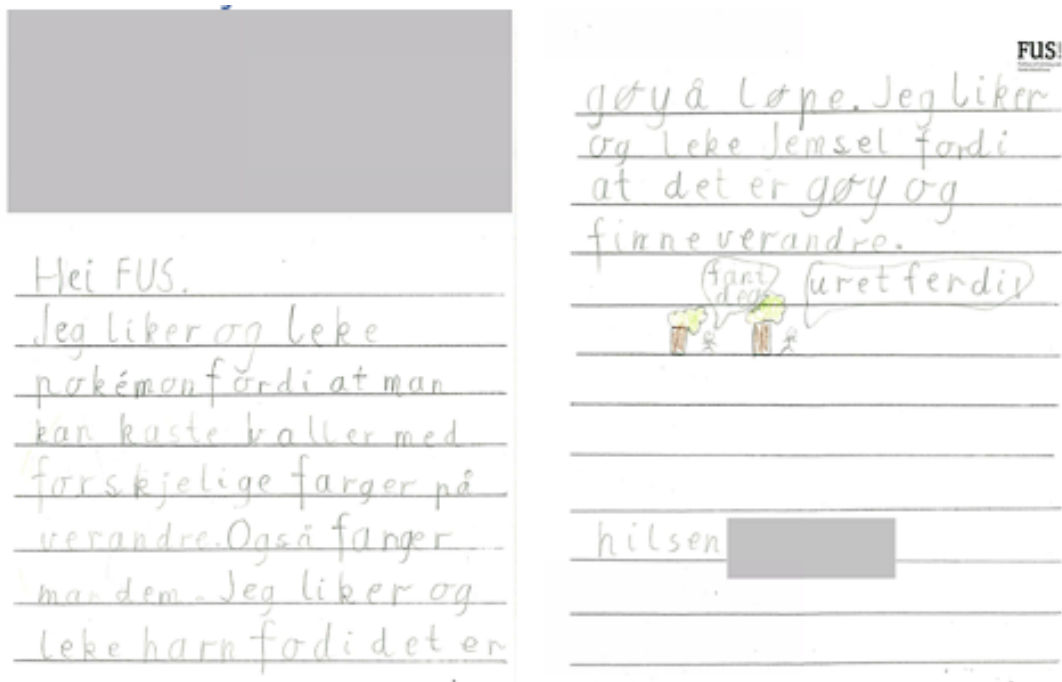 Hei FUS.
Jeg liker og leke
pokémon fordi at man
kan kaste baller med
forskjelige farger på
verandre. Også fanger
man dem. Jeg liker og
leke harn fodi det er
FUS
gøy å løpe. Jeg liker
og leke Jemsel fordi
at det er gøy og
finne verandre.
fant
deg
uretferdi!
hilsen